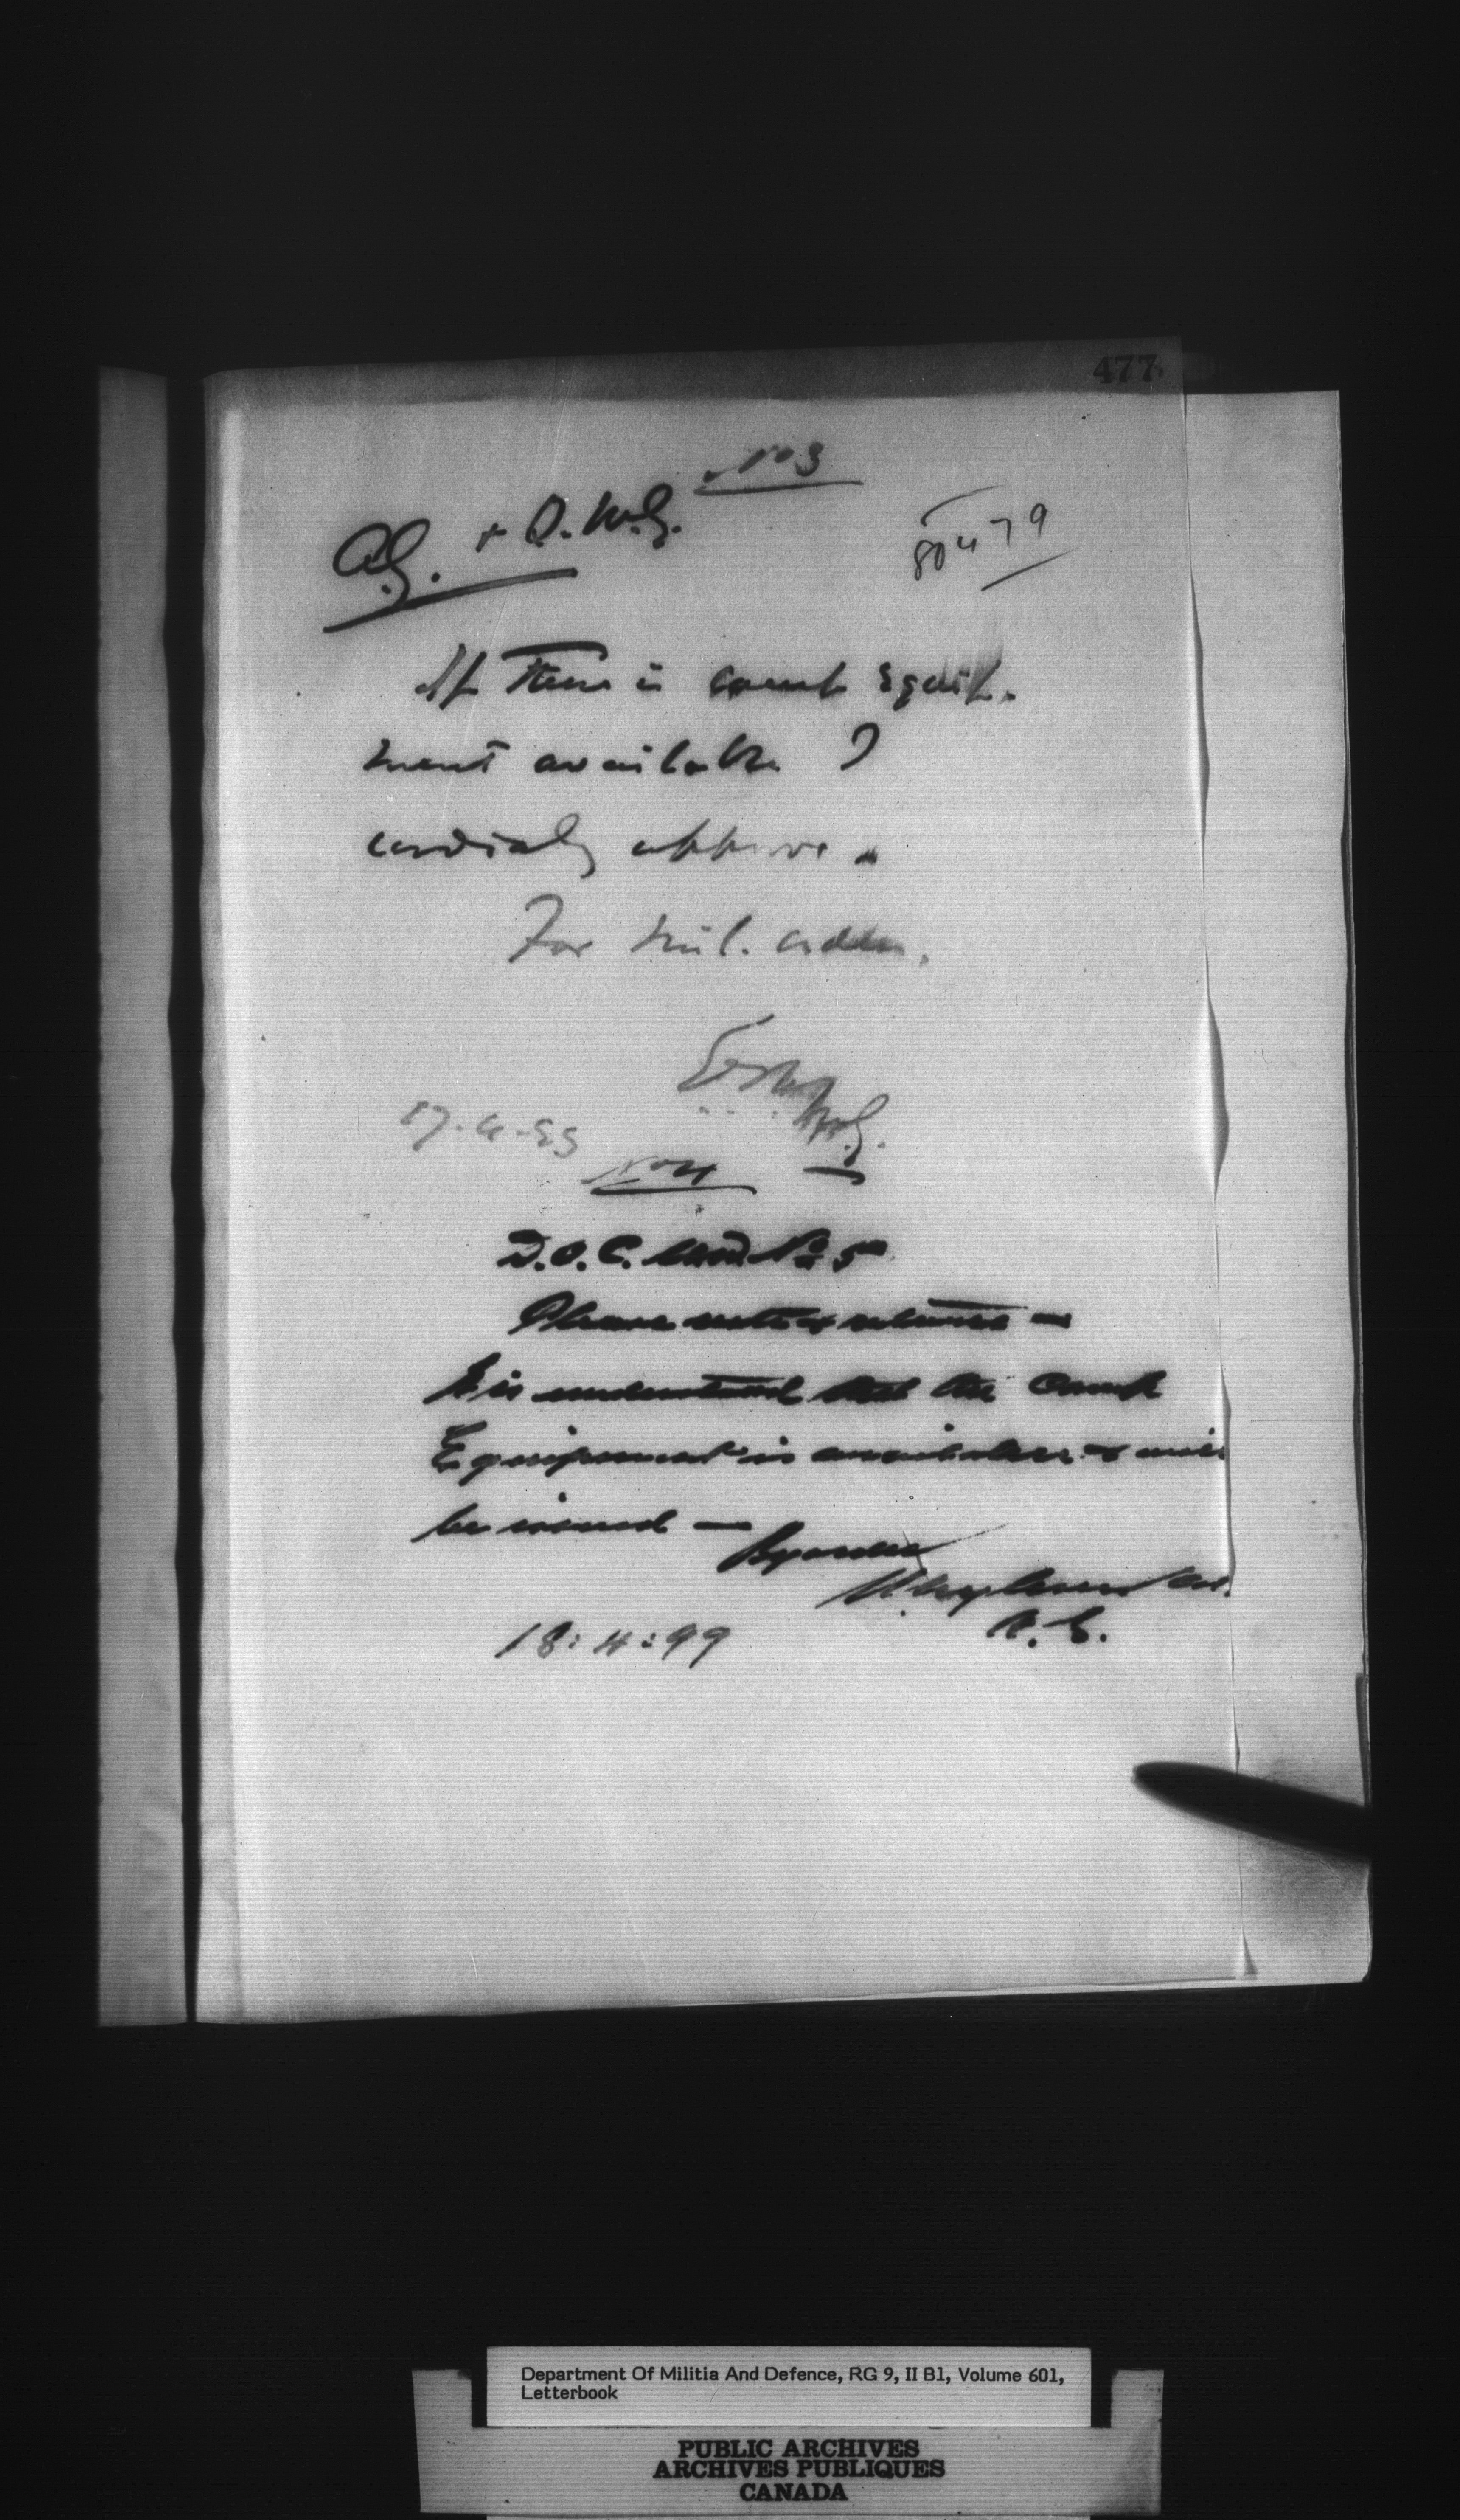 477
No 3
A.G. + Q.M.G.
80479
If there is camp equip-
ment available ?
cordially approve.
For Mil. order.
17-4-99
No 4
D.O.C. No 5
Please note & return —
It is understood that the Camp
Equipment is available & will
be issued —
By order
A.G.
18:4:99
Department Of Militia And Defence, RG 9, II B1, Volume 601,
Letterbook
PUBLIC ARCHIVES
ARCHIVES PUBLIQUES
CANADA